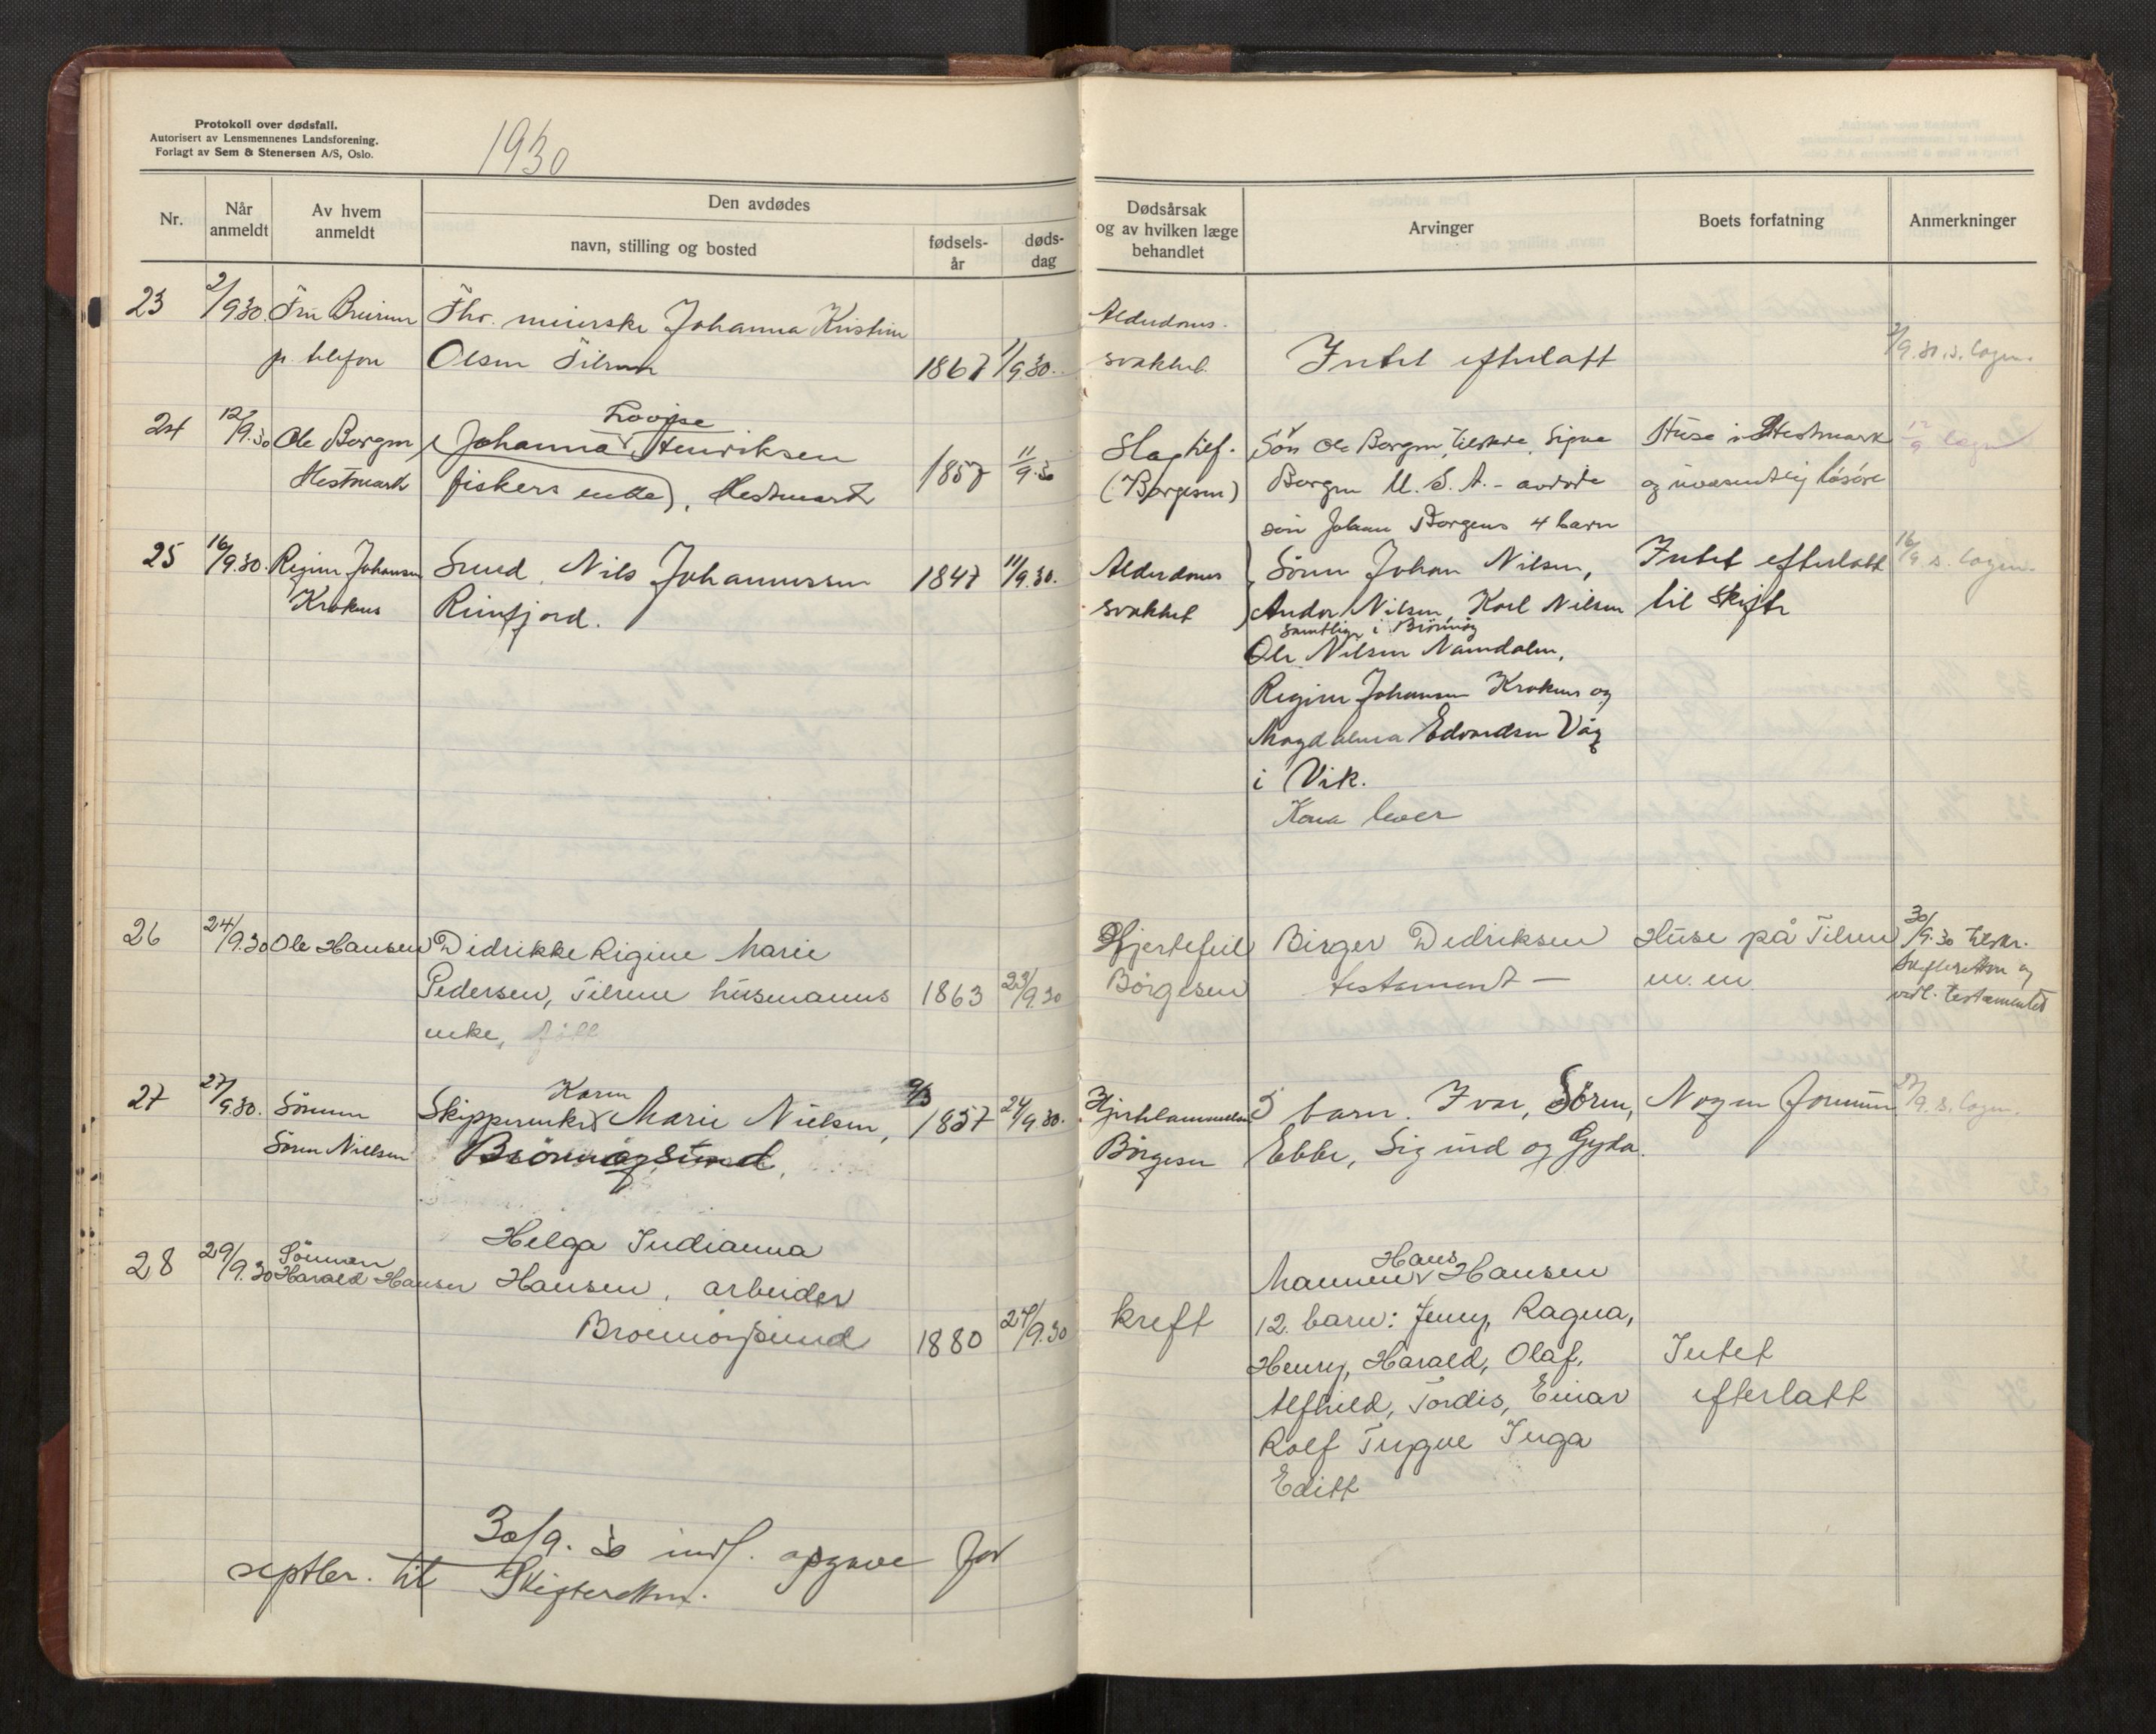 Protokoll over dødsfall.
Autorisert av Lensmennenes Landsforening.
Forlagt av Sem & Stenersen A/S, Oslo.
1930
Nr.
Når anmeldt
Av hvem anmeldt
Den avdødes
navn, stilling og bosted
fødsels-år
døds-dag
Dødsårsak og av hvilken læge behandlet
Arvinger
Boets forfatning
Anmerkninger
23 2/9 30. Fru
p. telefon
Johanna Kristine
Olsen Tilrem 1867 1/9 30.
Alderdoms-
svakhet
Intet efterlatt
2/9.30. s. lagen.
24 12/9.30 Ole Borgen
Hestmark
Lovise
Johanna Henriksen
fiskers enke, Hestmark 1857 11/9.30
Slagtilf.
(Børgesen)
Søn Ole Borgen, Signe
Borgen U.S.A. - avdøde
søn Johan Borgens 4 barn
Huse i Hestmark
og uvæsentlig løsøre
12/9 lagen
25 16/9.30. Regine Johansen
Krokus
Nils Johannessen 1847 11/9.30.
Alderdoms
svakhet
Sönn Johan Nilsen,
Andor Nilsen, Karl Nilsen
samtlige i Brönnöy
Ole Nilsen Namdalen,
Regine Johansen Krokus og
Magdalena Edvardsen Våg
i Vik.
Kona lever
Intet efterlatt
til skifte
16/9. s. lagen.
26 24/9.30 Ole Hansen
Didrikke Rigine Marie
Pedersen, Tilrem husmanns
enke, 1863 23/9.30
Hjertefeil
Börgesen
Birger Didriksen
testament —
Huse på Tilrem
m. m.
30/9.30 tilskr.
Skifteretten og
vedl. testamentet
27 27/9.30. Sönnen
Sören Nielsen
Karen
Skipperenke Marie Nielsen,
Brönnöysund, 9/3 1857 24/9.30.
Hjertelammelse
Börgesen
5 barn. Ivar, Sören,
Ebbe, Sigurd og Gyda.
Nogen formue
27/9. s. lagen.
28 29/9.30 Sönnen
Harald Hansen
Helga Indianna
Hansen, arbeider
Broennöysund 1880 24/9.30
kreft
Hans
Mannen Hansen
12. barn: Jenny, Ragna,
Henry, Harald, Olaf,
Alfhild, Tordis, Einar
Rolf Trygve Inga
Editt
Intet
efterlatt
30/9. 30 indf. opgave for
septbr. til Skifteretten.